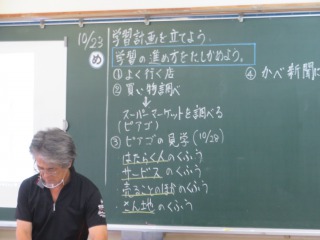 10/23
学習計画を立てよう。
め 学習の進め方をたしかめよう。
① よく行く店
② 買い物調べ
スーパーマーケットを調べる
(ピアゴ)
③ ピアゴの見学 (10/28)
・はたらく人のくふう
・サービスのくふう
・売ることのほかのくふう
・さん地のくふう
④ かべ新聞に